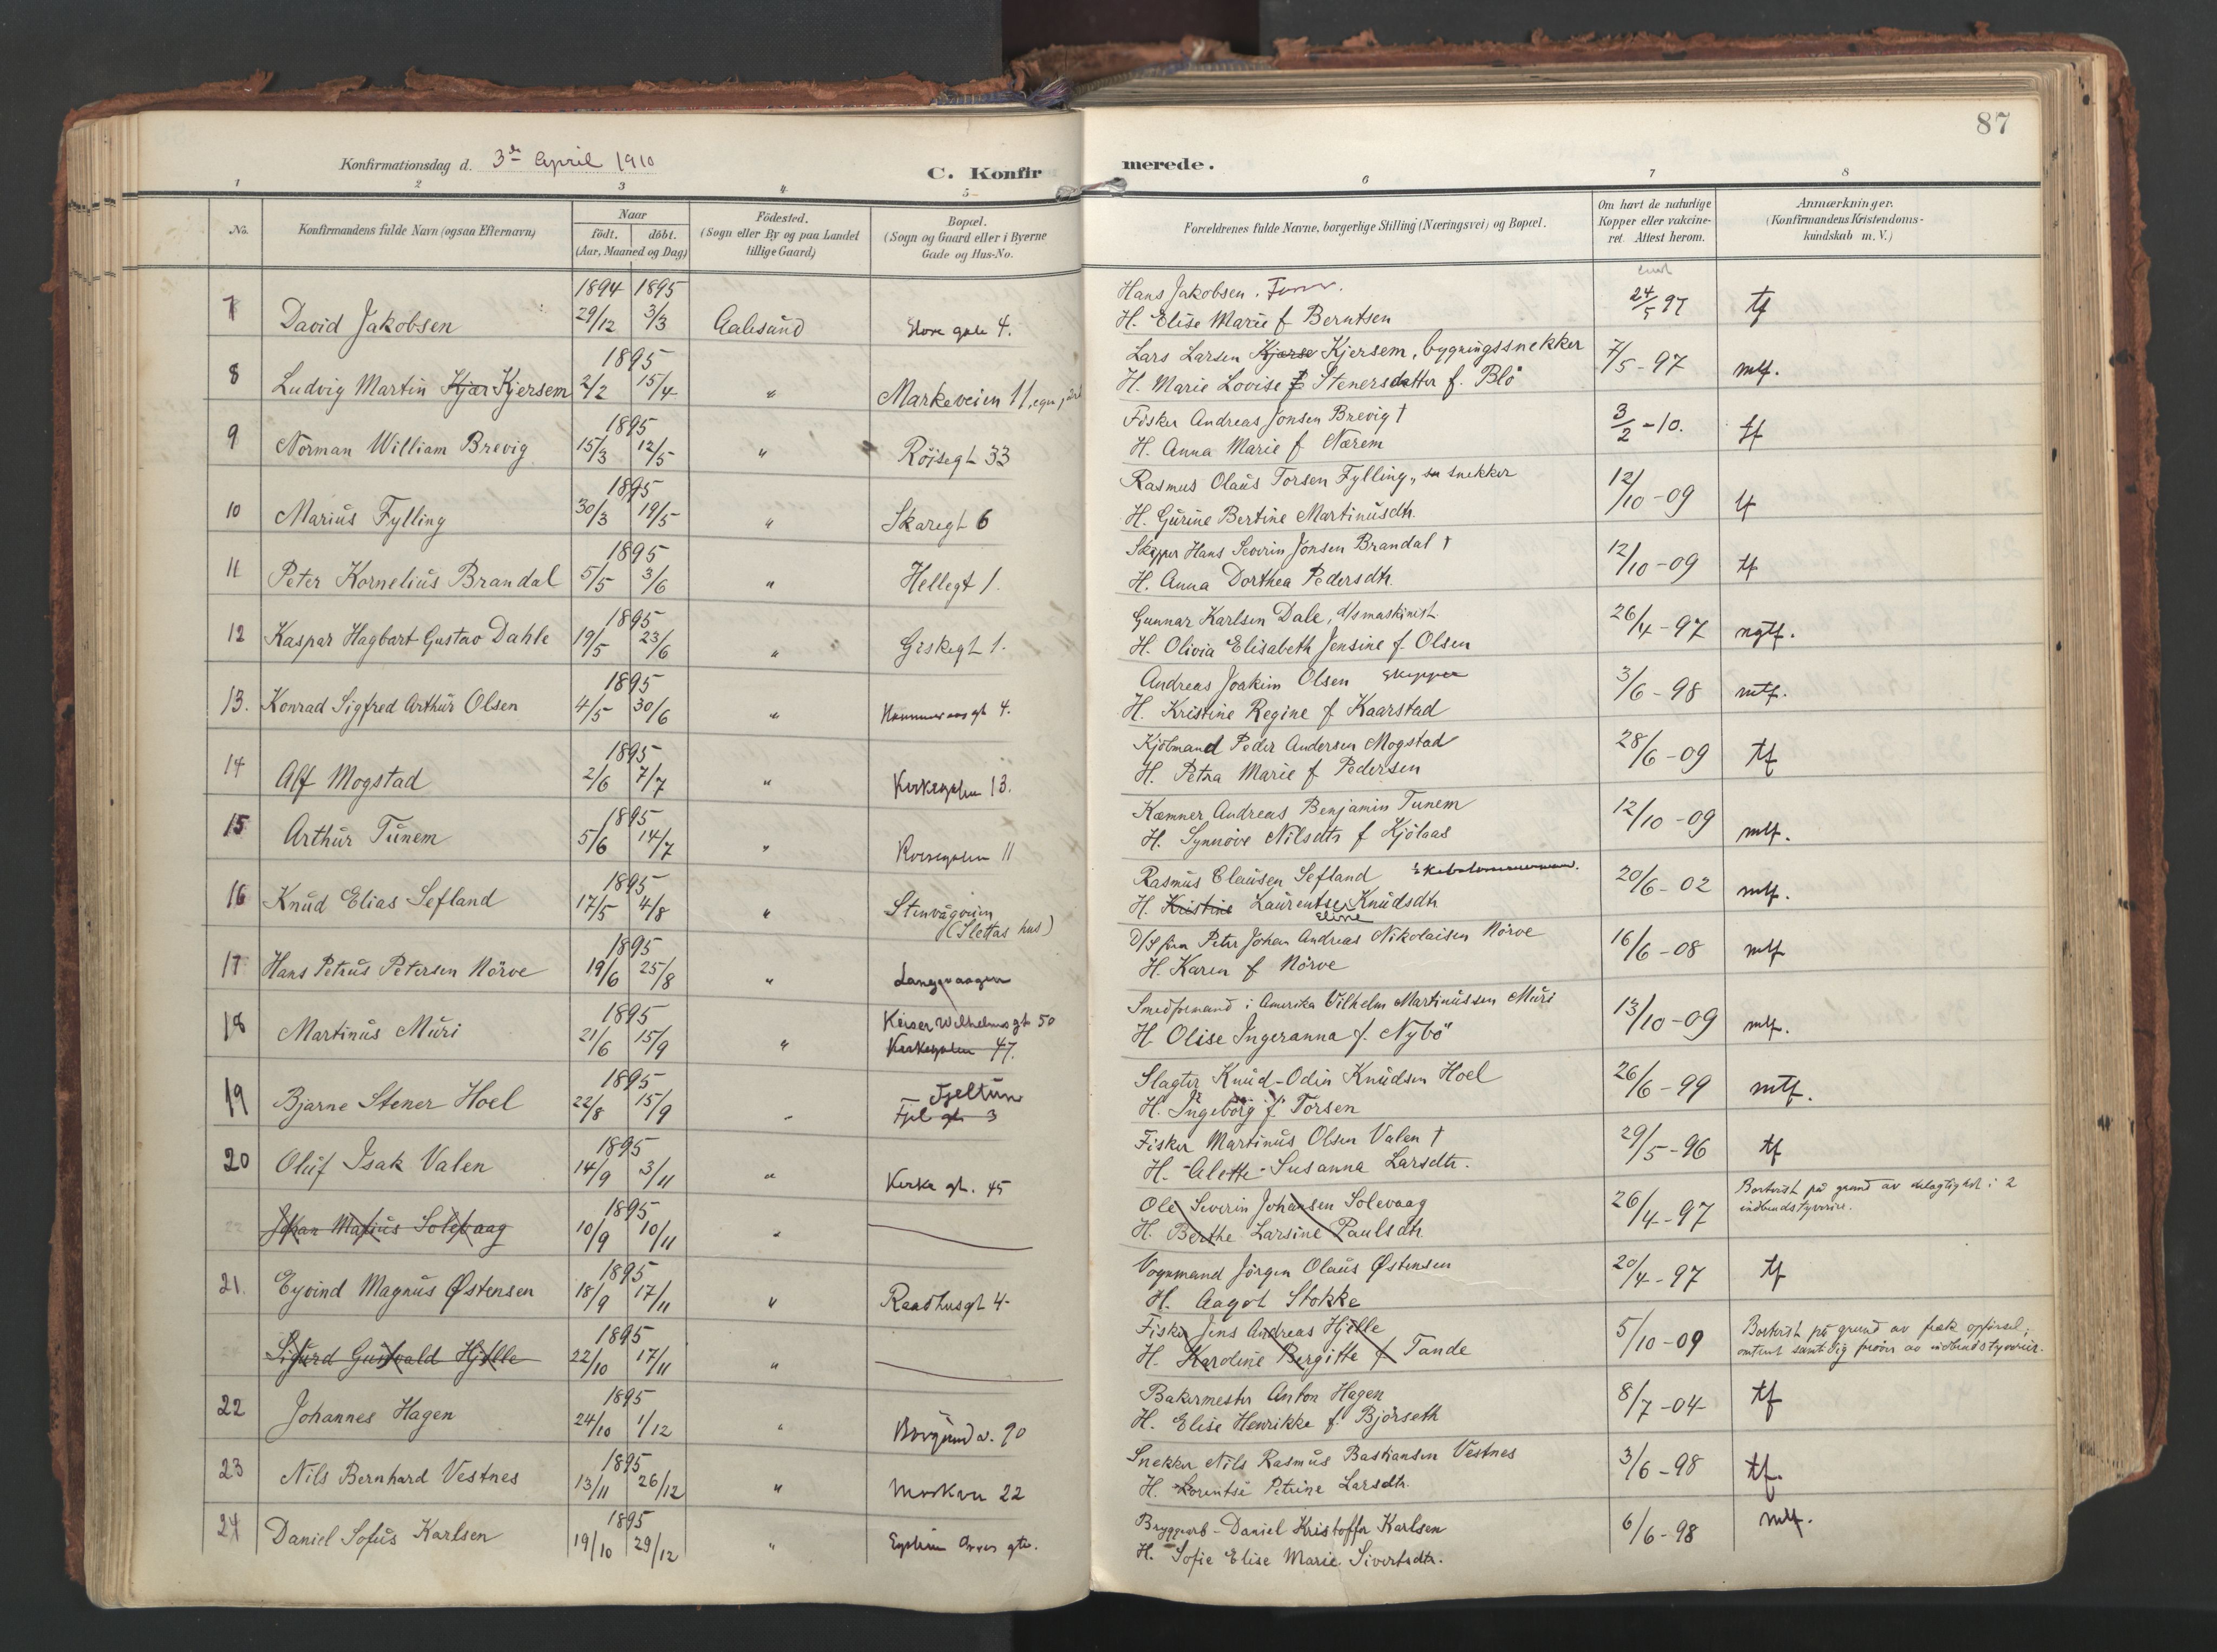 87
Konfirmationsdag d. 3de April 1910
C. Konfirmerede.
1 2 3 4 5 6 7 8
No. Konfirmandens fulde Navn (ogsaa Efternavn) Naar födt. döbt. (Aar, Maaned og Dag) Födested. (Sogn eller By og paa Landet tillige Gaard) Bopæl. (Sogn og Gaard eller i Byerne Gade og Hus-No. Forældrenes fulde Navne, borgerlige Stilling (Næringsvei) og Bopæl. Om havt de naturlige Kopper eller vakcineret. Attest herom. Anmærkninger. (Konfirmandens Kristendomskundskab m. V.)
1894 1895 Hans Jakobsen.
7 David Jakobsen 29/12 3/3 Aalesund Store gate 4. H. Elise Marie f Berntsen 24/5 97 tf
1895 Lars Larsen Kjærse Kjersem, bygningssnekker
8 Ludvig Martin Kjær Kjersem 2/2 15/4 " Markeveien 11, H. Marie Lovise Stenersdatter f. Blö 7/5-97 mtf.
1895 Fisker Andreas Jonsen Brevig †
9 Norman William Brevig 15/3 12/5 " Röisegt 33 H. Anna Marie f. Nærem 3/2-10. tf
1895 Rasmus Olaus Torsen Fylling, sn snekker
10 Marius Fylling 30/3 19/5 " Skaregt 6 H. Gurine Bertine Martinusdtr. 12/10-09 tf
1895 Skipper Hans Severin Jonsen Brandal †
11 Peter Kornelius Brandal 5/5 3/6 " Hellegt 1. H. Anna Dorthea Pedersdtr. 12/10-09 tf
1895 Gunnar Karlsen Dale, d/smaskinist.
12 Kaspar Hagbart Gustav Dahle 19/5 23/6 " Giskegt 1. H. Olivia Elisabeth Jensine f. Olsen 26/4-97 ngtf.
1895 Andreas Joakim Olsen Skipper
13. Konrad Sigfred Arthur Olsen 4/5 30/6 " 4. H. Kristine Regine f Kaarstad 3/6-98 mtf.
1895 Kjöbmand Peder Andersen Mogstad
14 Alf Mogstad 2/6 7/7 " Kirkegaten 13. H. Petra Marie f Pedersen 28/6-09 tf
1895 Kæmner Andreas Benjamin Tunem
15 Arthur Tunem 5/6 14/7 " 11 H. Synnöve Nilsdtr f Kjölaas 12/10-09 mtf.
1895 Rasmus Clausen Sefland
16 Knud Elias Sefland 17/5 4/8 " Stenvågveien (Slettas hus) H. Kristine Laurentse Eline Knudsdtr 20/6-02 mtf.
1895 Peter Johan Andreas Nikolaisen Nörve
17 Hans Petrus Petersen Nörve 19/6 25/8 " Langevaagen H. Karen f Nörve 16/6-08 mtf
1895 Keiser Wilhelms gt 50 Smedformand i Amerika Vilhelm Martinussen Muri
18 Martinus Muri 21/6 15/9 " Kirkegaten 47. H. Olise Ingeranna f. Nybö 13/10-09 mtf.
1895 Fjeltun Slagter Knud-Odin Knudsen Hoel
19 Bjarne Stener Hoel 22/8 15/9 " Fjel gt 3 H. Ingeborg f. Torsen 26/6-99 mtf.
1895 Fisker Martinus Olsen Valen †
20 Oluf Isak Valen 14/9 3/11 " Kirke gt. 45 H. Alette Susanna Larsdtr. 29/5-96 tf
1895 Ole Severin Johansen Solevaag Bortvist på grund av delagtighet i 2 indbrudstyverier.
22 Johan Marius Solevaag 10/9 10/11 " H. Berthe Larsine Paulsdtr. 26/4-97
1895 Vognmand Jörgen Olaus Østensen
21. Eyvind Magnus Østensen 18/9 17/11 " Raadhusgt 4 H. Aagot Stokke 20/4-97 tf
1895 Fisker Jens Andreas Hjelle Bortvist på grund av fræk opførsel,
Sigurd Gustvald Hjelle 22/10 17/11 " H. Karoline Bergitte f Tande 5/10-09 samtidig av indbrudstyverier.
1895 Bakermester Anton Hagen
22 Johannes Hagen 24/10 1/12 " Borgund v. 90 H. Elise Henrikke f. Björseth 8/7-04 tf
1895 Snekker Nils Rasmus Bastiansen Vestnes
23 Nils Bernhard Vestnes 13/11 26/12 " 22 H. Lorentse Petrine Larsdtr. 3/6-98 tf.
1895 Bryggearb. Daniel Kristoffer Karlsen
24 Daniel Sofus Karlsen 19/10 29/12 " H. Sofie Elise Marie Sivertsdtr. 6/6-98 mtf.